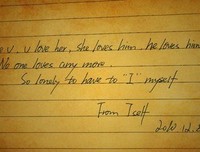 e u. u love her, she loves him. he loves him
No one loves any more.
So lonely to have to "I" myself
From Tself
2010.12.8